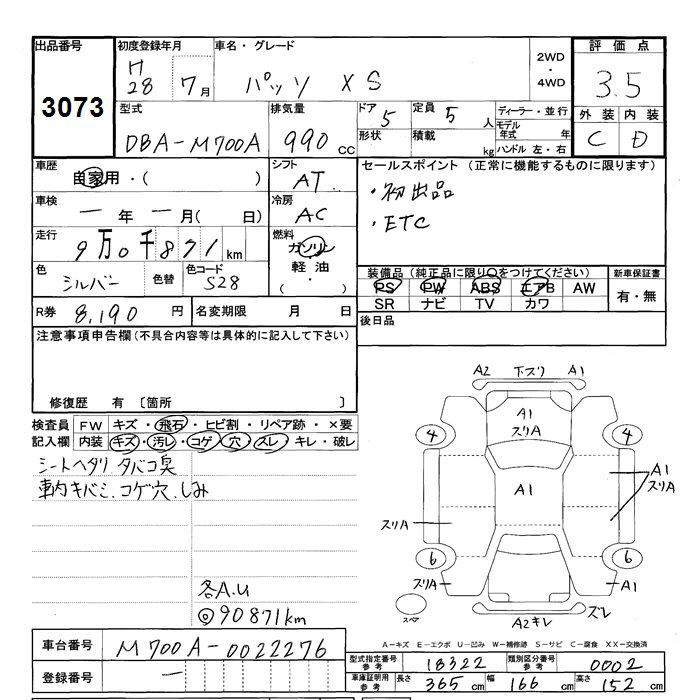 出品番号 初度登録年月 車名・グレード 2WD・4WD 評価点
3073 H28 7月 パッソ X S 3.5
型式 排気量 ドア 5 定員 5人 ディーラー・並行 外装 内装
DBA-M700A 990cc 形状 積載 kg モデル年式 年 C D
ハンドル 左・右
車歴 自家用・( ) シフト AT セールスポイント (正常に機能するものに限ります)
・初出品
車検 ー年ー月( 日) 冷房 AC ・ETC
走行 9万0千871km 燃料 ガソリン
軽油
・( )
色 シルバー 色替 色コード S28 装備品 (純正品に限り○をつけてください) 新車保証書
PS PW ABS エアB AW 有・無
SR ナビ TV カワ
R券 8,190円 名変期限 月 日 後日品
注意事項申告欄(不具合内容等は具体的に記入して下さい)
修復歴 有 〔箇所 〕
検査員 FW キズ・飛石・ヒビ割・リペア跡・×要
記入欄 内装 キズ・汚レ・コゲ・穴・スレ・キレ・破レ
シートヘタリ タバコ臭
車内キバミ.コゲ穴.しみ
各A.U
◎90871km
A2 下スリ A1
4 A1 スリA 4
A1
A1 スリA
スリA
6 6
スリA A1
スペア A2キレ ズレ
A-キズ E-エクボ U-凹み W-補修跡 S-サビ C-腐食 XX-交換済
車台番号 M700A-0022276
登録番号 ー
型式指定番号 参考 18322 類別区分番号 参考 0002
車庫証明用 参考 長さ 365cm 幅 166cm 高さ 152cm